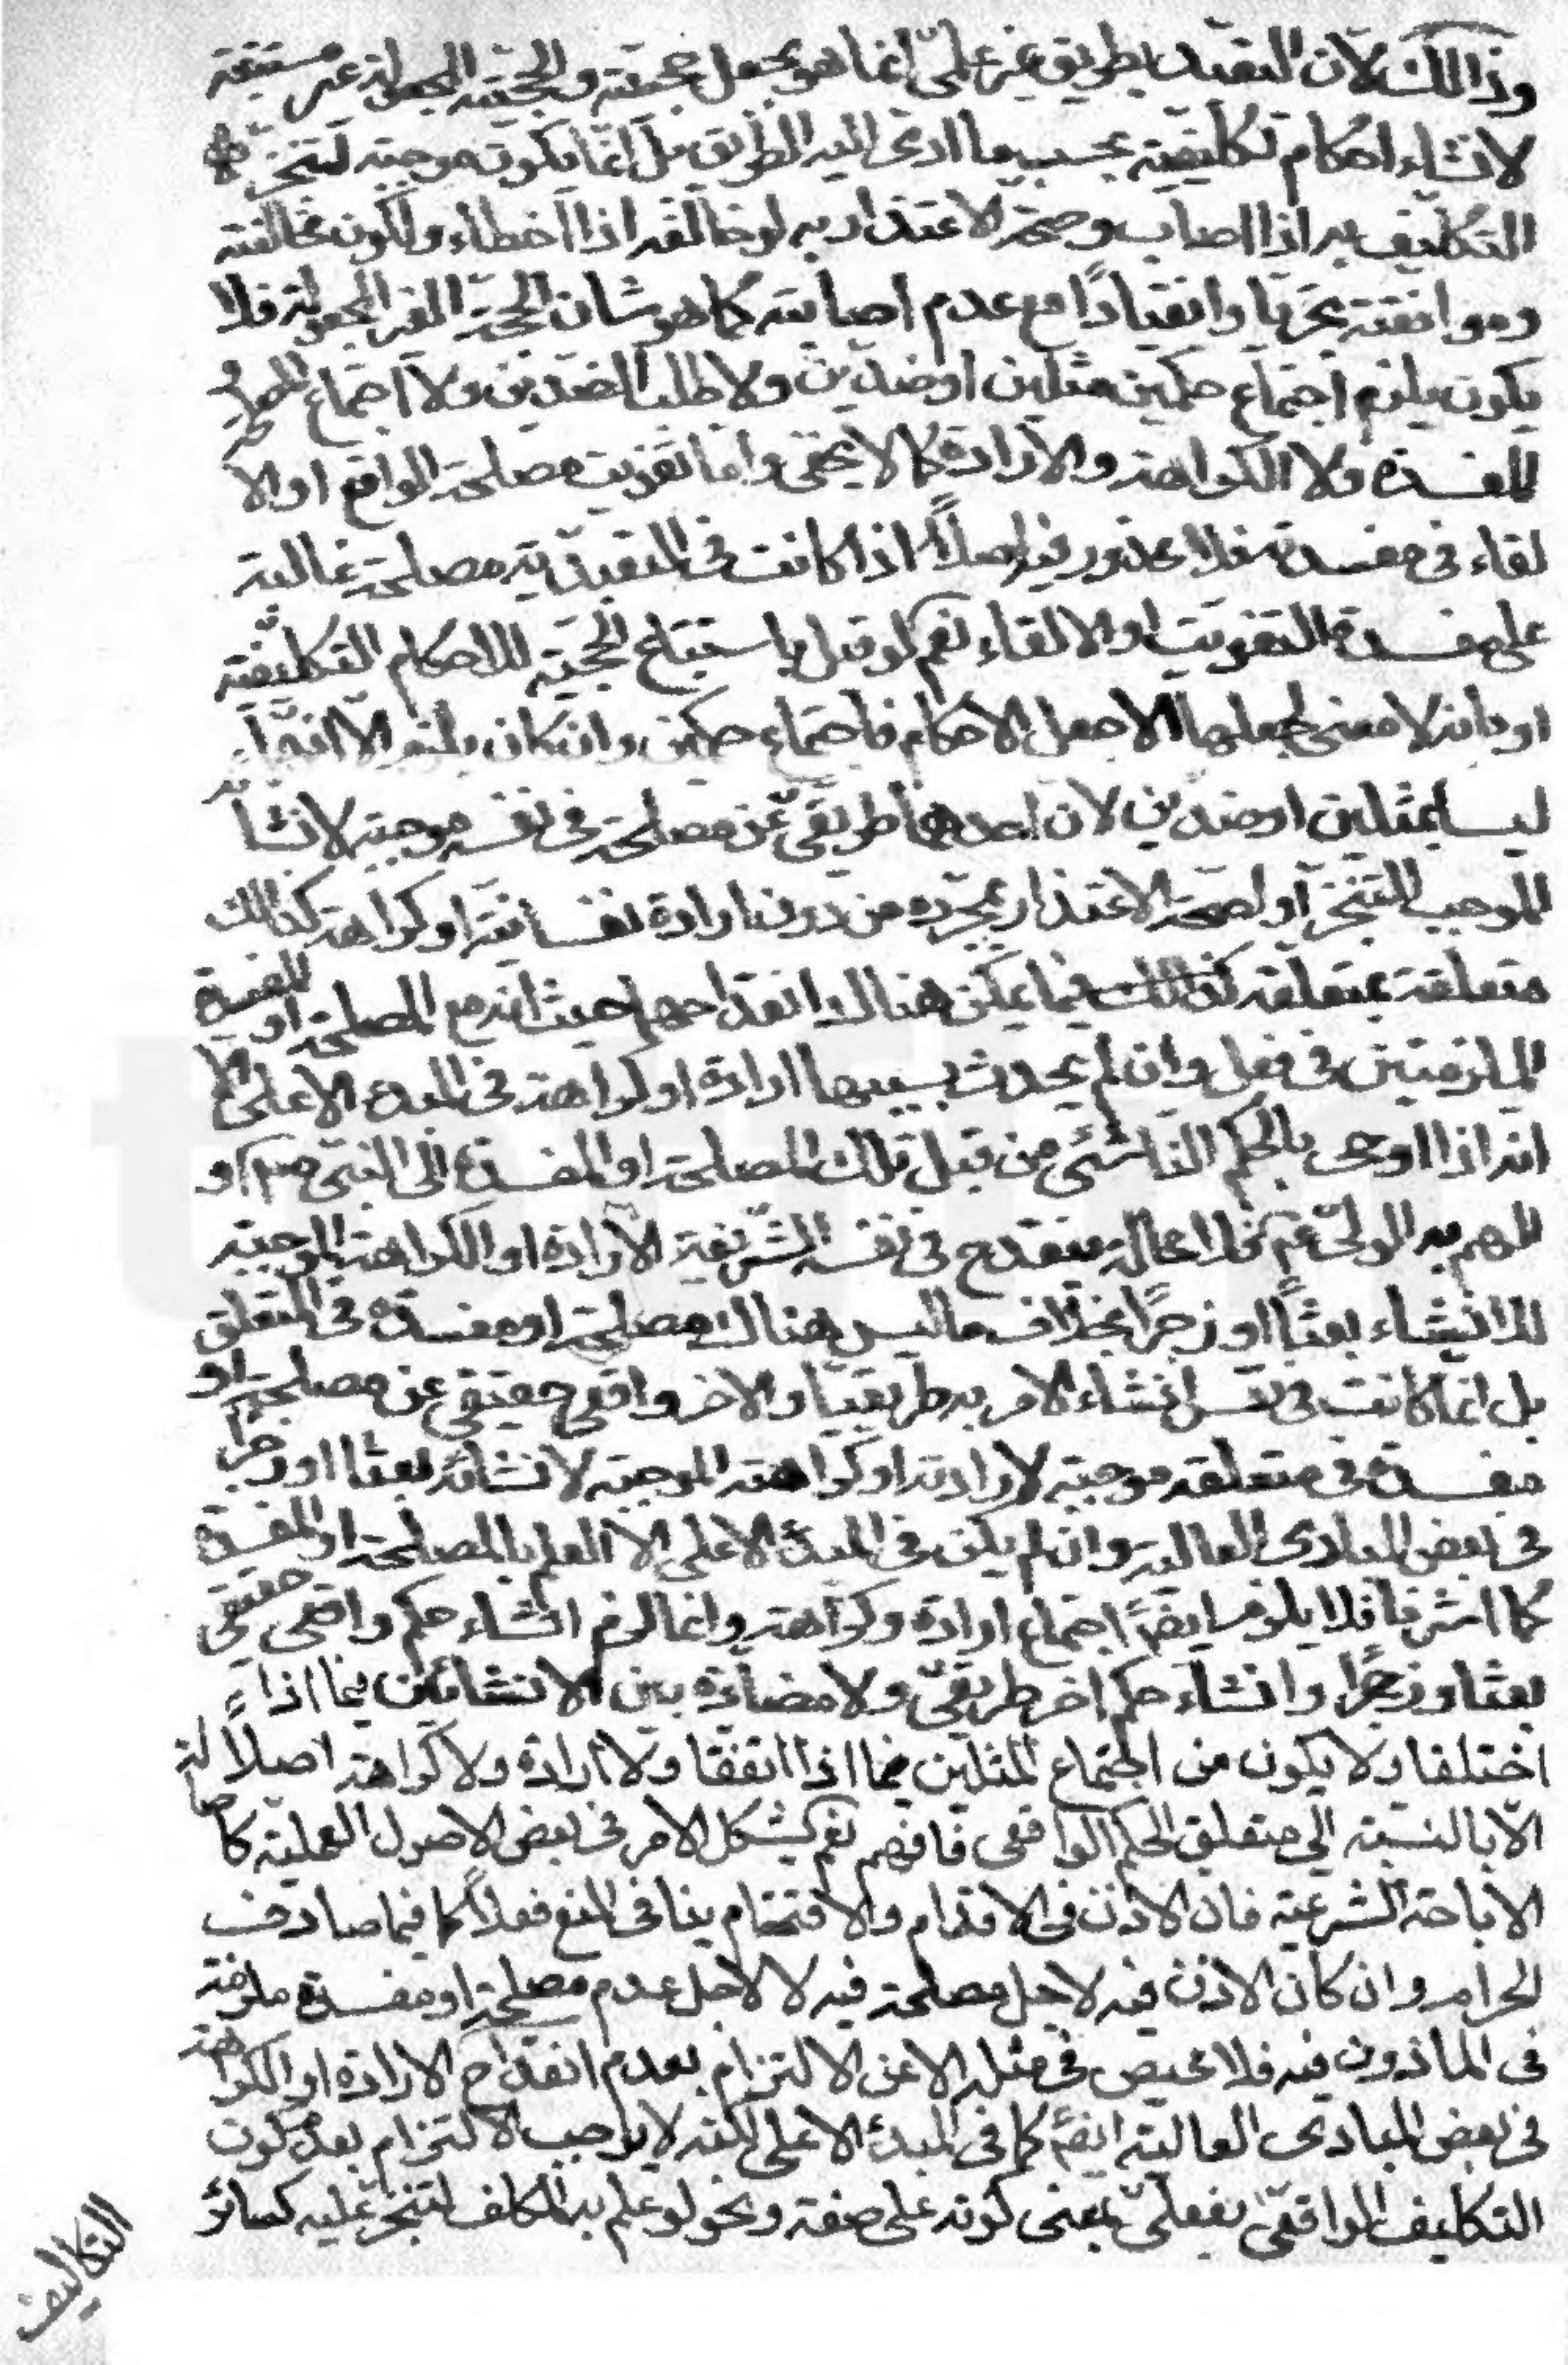 وذالك لان التعبد بطريق غير علمى انما هو بجعل حجيته والحجية المجعولة غير مستتبعة
لانشاء احكام تكليفية بحسب ما ادى اليه الطريق بل انما تكون موجبة لتنجز
التكليف به اذا اصاب وصحة الاعتذار به لو خالفه اذا اخطاء ولكون مخالفته
وموافقته تجريا وانقيادًا مع عدم اصابته كما هو شان الحجة الغير المجعولة فلا
يكون يلزم اجتماع حكمين مثلين او ضدين ولا طلب الضدين ولا اجتماع المصلحة و
المفسدة ولا الكراهة والارادة كما لا يخفى واما تفويت مصلحة الواقع او الا
لقاء فى مفسدته فلا محذور فيه اصلًا اذا كانت فى التعبد به مصلحة غالبة
على مفسدة التفويت او الالقاء نعم لو قيل باستتباع الحجية للاحكام التكليفية
او بانه لا معنى لجعلها الا جعل الاحكام فاجتماع حكمين وان كان يلزم الا انهما
ليسا بمثلين او ضدين لان احدهما طريقى عن مصلحة فى نفسه موجبة لانشائه
الموجب للتنجز او لصحة الاعتذار بمجرده من دون ارادة نفسانية او كراهة كذالك
متعلقة بمتعلقه كذالك فيما يمكن هناك انقداحهما حيث انه مع المصلحة او المفسدة
الملزمتين فى فعل وان لم يحدث بسببها ارادة او كراهة فى المبدء الاعلى الا
انه اذا اوحى بالحكم الناشئ من قبل تلك المصلحة او المفسدة الى النبى ص او
الهم به الولى ع فلا محالة ينقدح فى نفسه الشريفة الارادة او الكراهة الموجبة
للانشاء بعثًا او زجرًا بخلاف ما ليس هناك مصلحة او مفسدة فى المتعلق
بل انما كانت فى نفس انشاء الامر به طريقيا والاخر واقعى حقيقى عن مصلحة او
مفسدة فى متعلقه موجبة لارادته او كراهته الموجبة لانشائه بعثا او زجرا
فى بعض المبادى العالية وان لم يكن فى المبدء الاعلى الا العلم بالمصلحة او المفسدة
كما اشرنا فلا يلزم ايضًا اجتماع ارادة وكراهة وانما لزم انشاء حكم واقعى حقيقى
بعثا وزجرًا وانشاء حكم اخر طريقى ولا مضادة بين الانشائين فيما اذا
اختلفا ولا يكون من اجتماع المثلين فيما اذا اتفقا ولا ارادة ولا كراهة اصلًا
الا بالنسبة الى متعلق الحكم الواقعى فافهم نعم يشكل الامر فى بعض الاصول العملية كاصالة
الاباحة الشرعية فان الاذن فى الاقدام والاقتحام ينافى المنع فعلًا كما فيما صادف
الحرام وان كان الاذن فيه لاجل مصلحة فيه لا لاجل عدم مصلحة او مفسدة ملزمة
فى الماذون فيه فلا محيص فى مثله الا عن الالتزام بعدم انقداح الارادة او الكراهة
فى بعض المبادى العالية ايضًا كما فى المبدء الاعلى لكنه لا يوجب الالتزام بعدم كون
التكليف الواقعى بفعلى بمعنى كونه على صفة ونحو لو علم به المكلف لتنجز عليه كسائر
التكاليف